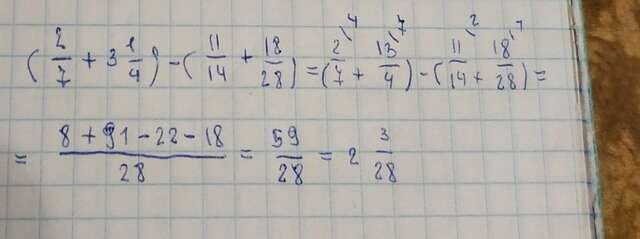 (2/7 + 3 1/4) - (11/14 + 18/28) = (2/7 ⁴ + 13/4 ⁷) - (11/14 ² + 18/28 ¹) =
= (8 + 91 - 22 - 18)/28 = 59/28 = 2 3/28